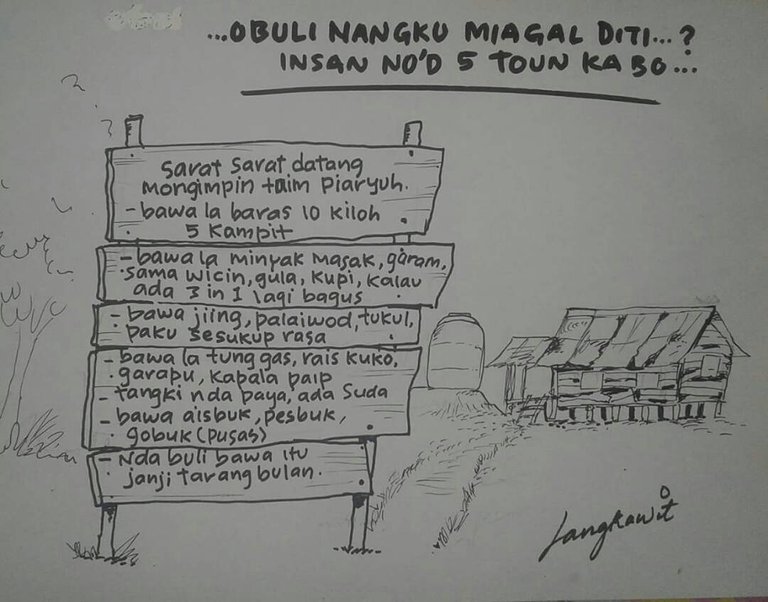 ...OBULI NANGKU MIAGAL DITI...?
INSAN NO'D 5 TOUN KA BO...
sarat sarat datang
mongimpin taim piaryuh.
- bawa la baras 10 kiloh
5 kampit
- bawa la minyak masak, garam,
sama wicin, gula, kupi, kalau
ada 3 in 1 lagi bagus
- bawa jiing, palaiwod, tukul,
paku sesukup rasa
- bawa la tung gas, rais kuko,
garapu, kapala paip
- tangki nda paya, ada suda
- bawa aisbuk, pesbuk,
gobuk (pusas)
- nda buli bawa itu
janji tarang bulan.
Langkawit